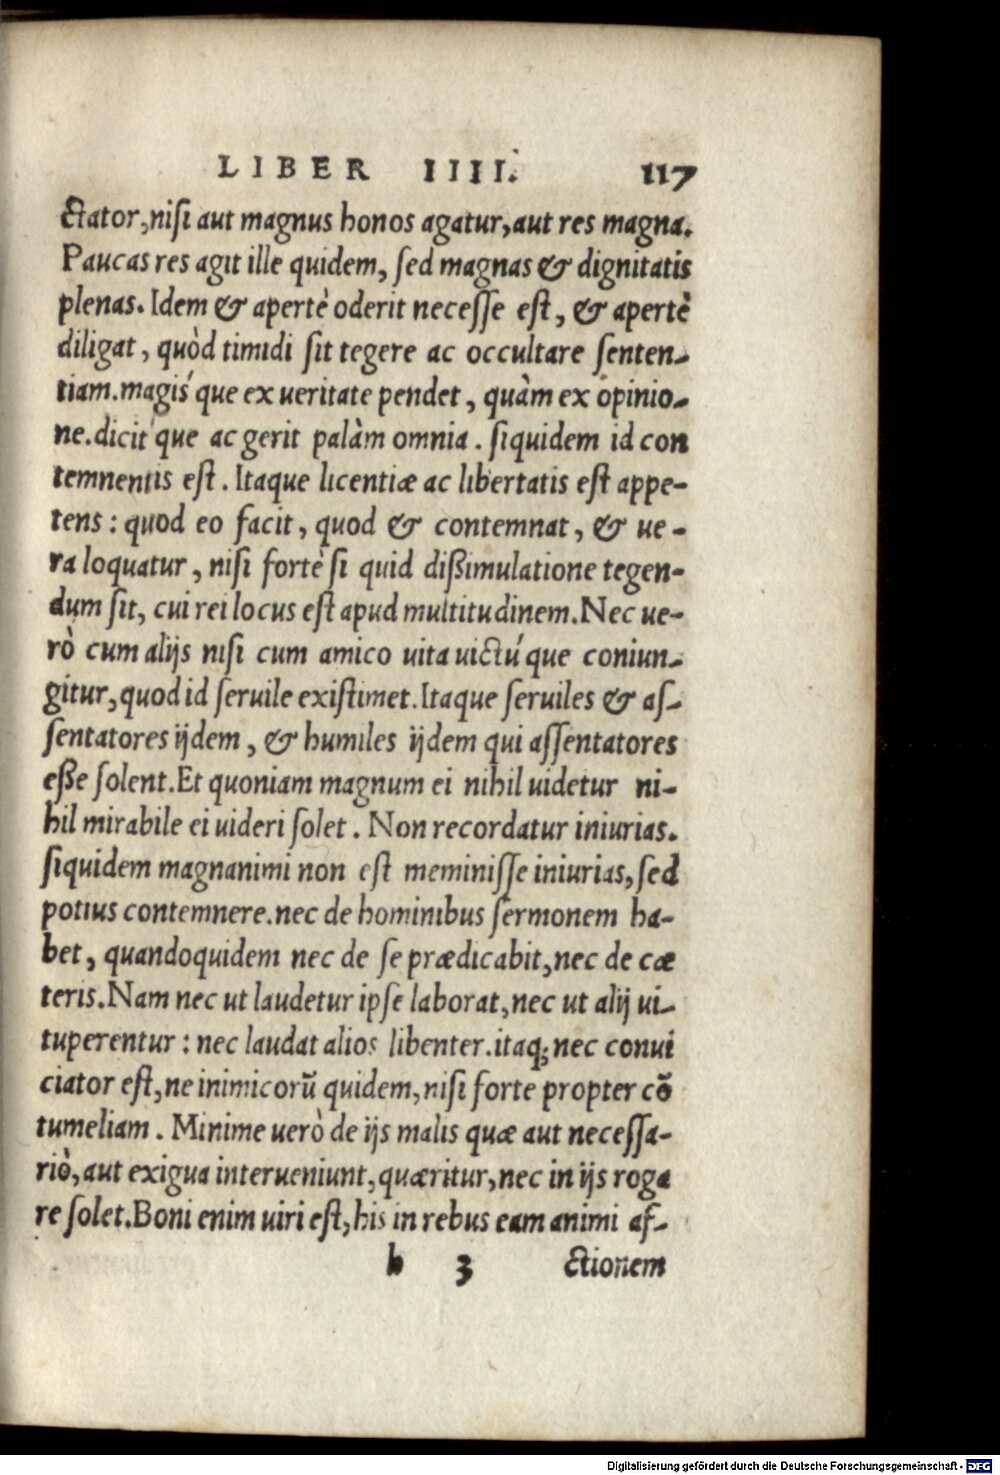 LIBER IIII. 117
ctator, nisi aut magnus honos agatur, aut res magna.
Paucas res agit ille quidem, sed magnas & dignitatis
plenas. Idem & apertè oderit necesse est, & apertè
diligat, quòd timidi sit tegere ac occultare senten-
tiam. magis'que ex ueritate pendet, quàm ex opinio-
ne. dicit'que ac gerit palàm omnia. siquidem id con
temnentis est. Itaque licentiæ ac libertatis est appe-
tens: quod eo facit, quod & contemnat, & ue-
ra loquatur, nisi fortè si quid dißimulatione tegen-
dum sit, cui rei locus est apud multitudinem. Nec ue-
rò cum alijs nisi cum amico uita uictú'que coniun-
gitur, quod id seruile existimet. Itaque seruiles & as-
sentatores ijdem, & humiles ijdem qui assentatores
eße solent. Et quoniam magnum ei nihil uidetur ni-
hil mirabile ei uideri solet. Non recordatur iniurias.
siquidem magnanimi non est meminisse iniurias, sed
potius contemnere. nec de hominibus sermonem ha-
bet, quandoquidem nec de se prædicabit, nec de cæ
teris. Nam nec ut laudetur ipse laborat, nec ut alij ui-
tuperentur: nec laudat alios libenter. itaq; nec conui
ciator est, ne inimicorũ quidem, nisi forte propter cõ
tumeliam. Minime uerò de ijs malis quæ aut necessa-
riò, aut exigua interueniunt, quæritur, nec in ijs roga
re solet. Boni enim uiri est, his in rebus eam animi af-
h 3 ctionem
Digitalisierung gefördert durch die Deutsche Forschungsgemeinschaft - DFG